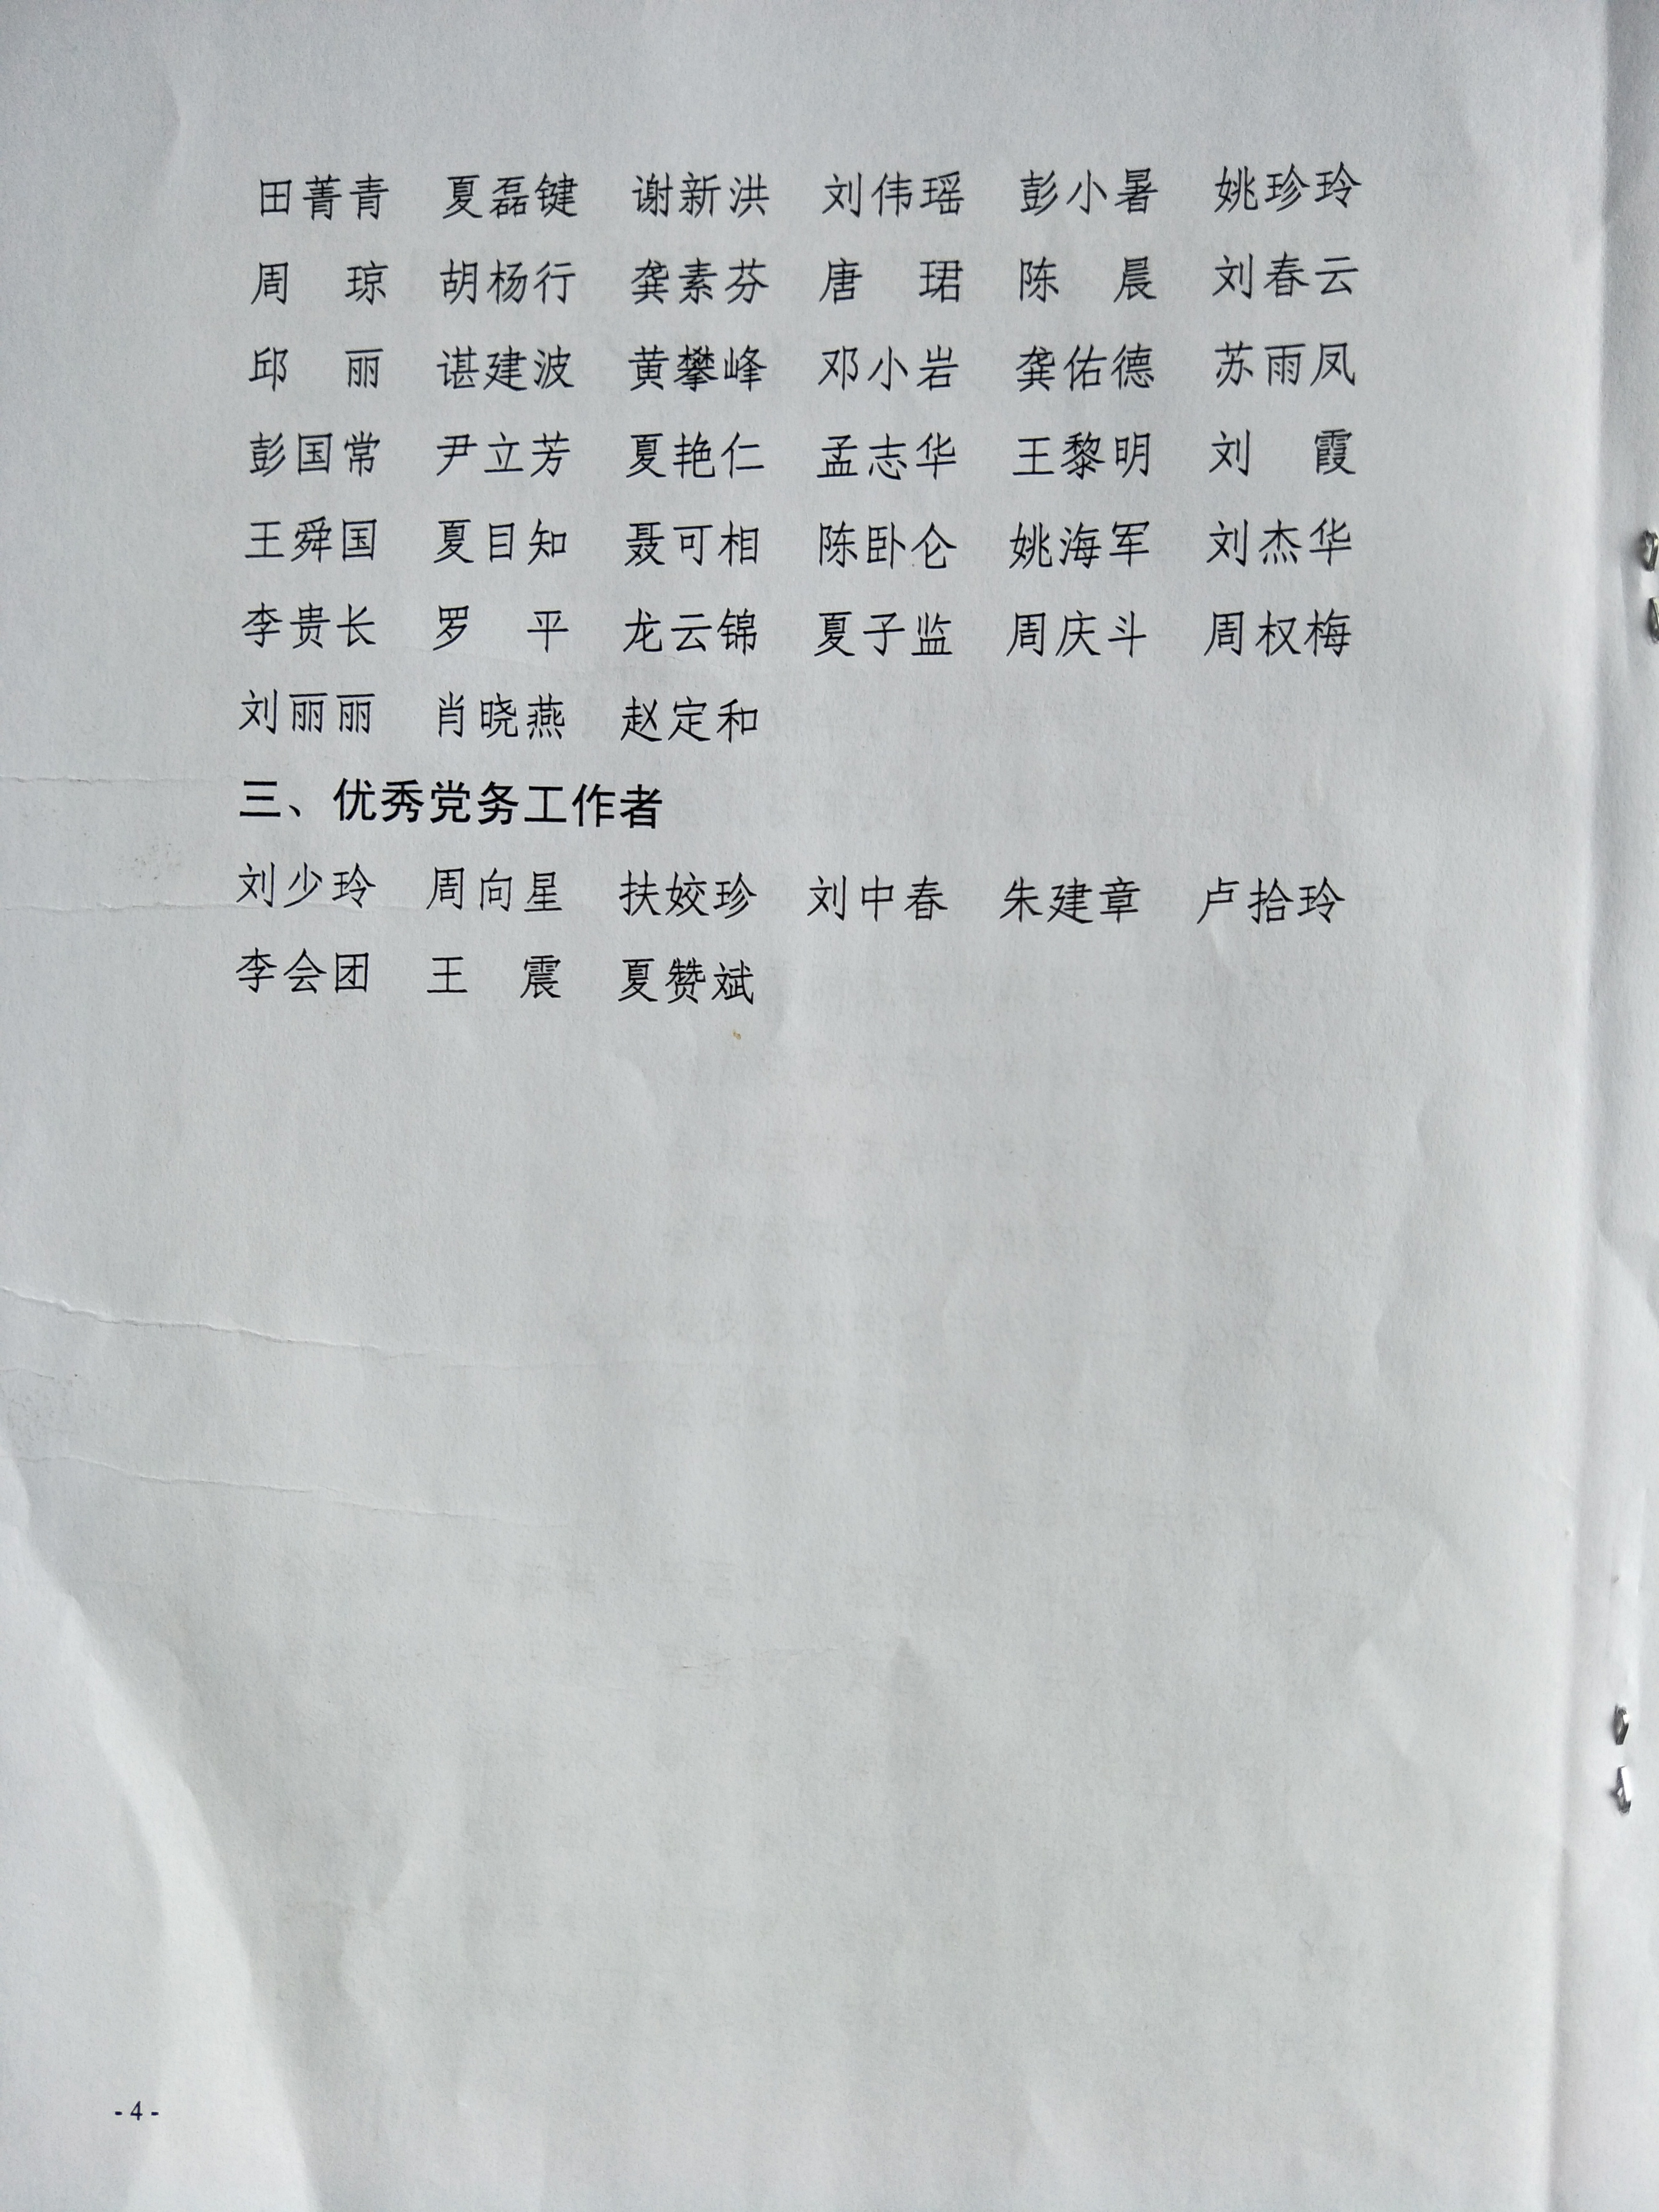 田菁青 夏磊键 谢新洪 刘伟瑶 彭小暑 姚珍玲
周 琼 胡杨行 龚素芬 唐 珺 陈 晨 刘春云
邱 丽 谌建波 黄攀峰 邓小岩 龚佑德 苏雨凤
彭国常 尹立芳 夏艳仁 孟志华 王黎明 刘 霞
王舜国 夏目知 聂可相 陈卧仑 姚海军 刘杰华
李贵长 罗 平 龙云锦 夏子监 周庆斗 周权梅
刘丽丽 肖晓燕 赵定和
三、优秀党务工作者
刘少玲 周向星 扶姣珍 刘中春 朱建章 卢拾玲
李会团 王 震 夏赞斌
- 4 -